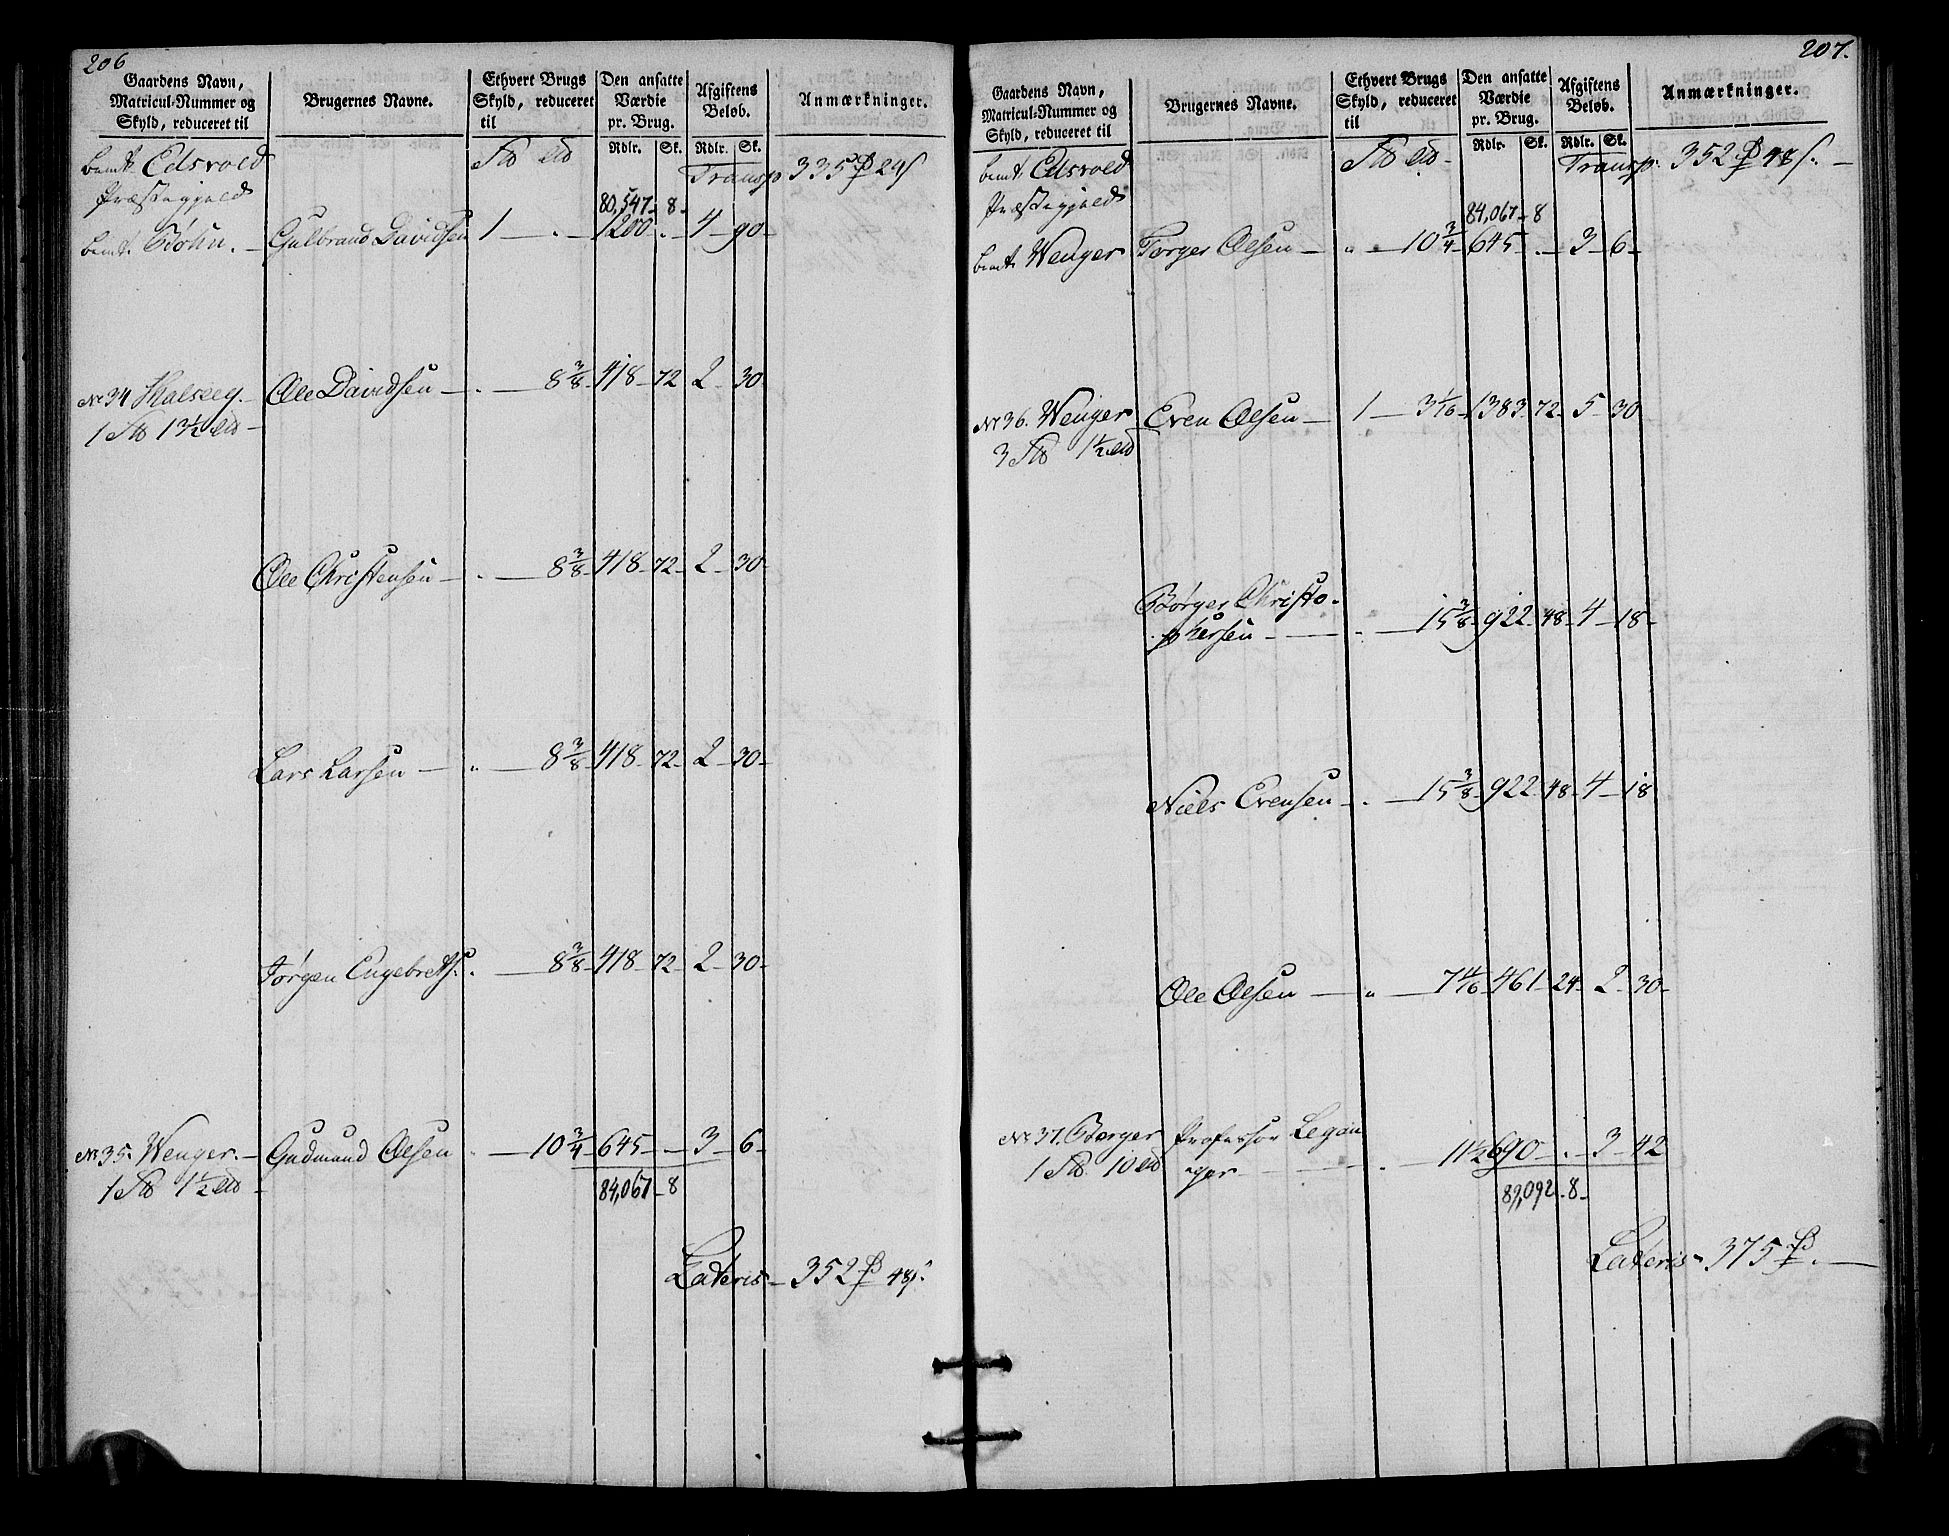 206
Gaardens Navn,
Matricul-Nummer og
Skyld, reduceret til
Brugernes Navne.
Ethvert Brugs
Skyld, reduceret
til
Den ansatte
Værdie
pr. Brug.
Rdlr. Sk.
Afgiftens
Beløb.
Rdlr. Sk.
Anmærkninger.
bemt. Edsvold
Transp 335 24
Præstegjeld
80,547 - 8 -
bemt. Bøhn. - Gulbrand Davidsen 1 - . - 1200 - . - 4 - 90 -
No 34 Ole Davidsen - . - 8 3/8 - 418 - 72 2 - 30
1 13½
Ole Christensen - . - 8 3/8 - 418 - 72 - 2 - 30 -
Lars Larsen - " - 8 3/8 - 418 - 72 - 2 - 30 -
Jørgen Engebrets: . - 8 3/8 - 418 - 72 - 2 - 30 -
No 35. Wenger. - Gudmund Olsen . - 10 3/4 - 645 - - 3 - 6 -
1 1½
84,067 - 8
Lateris - 352 48
207.
Gaardens Navn,
Matricul-Nummer og
Skyld, reduceret til
Brugernes Navne.
Ethvert Brugs
Skyld, reduceret
til
Den ansatte
Værdie
pr. Brug.
Rdlr. Sk.
Afgiftens
Beløb.
Rdlr. Sk.
Anmærkninger.
bemt. Edsvold
Transp. 352 48
Præstegjeld
84,067 - 8
bemt. Wenger Torger Olsen - " - 10 3/4 - 645 - . - 3 - 6 -
No 36. Wenger Even Olsen - 1 - 3 1/16 - 1383 - 72 - 5 - 30 -
3 1½
Børger Christo-
phersen - - " - 15 3/8 - 922 - 48 - 4 - 18 -
Niels Evensen - . - 15 3/8 - 922 - 48 - 4 - 18
Ole Olsen - " - 461 - 24 - 2 - 30 -
No 37. Berger Professor
1 10 . - 11½ 690 - . - 3 - 42
89,092 - 8 -
Lateris - 375